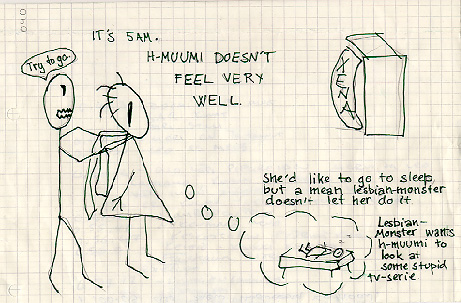 IT'S 5AM.
H-MUUMI DOESN'T
FEEL VERY
WELL.
Try to go.
XENA
She'd like to go to sleep
but a mean lesbian-monster
doesn't let her do it
Lesbian-
Monster wants
h-muumi to
look at
some stupid
tv-serie